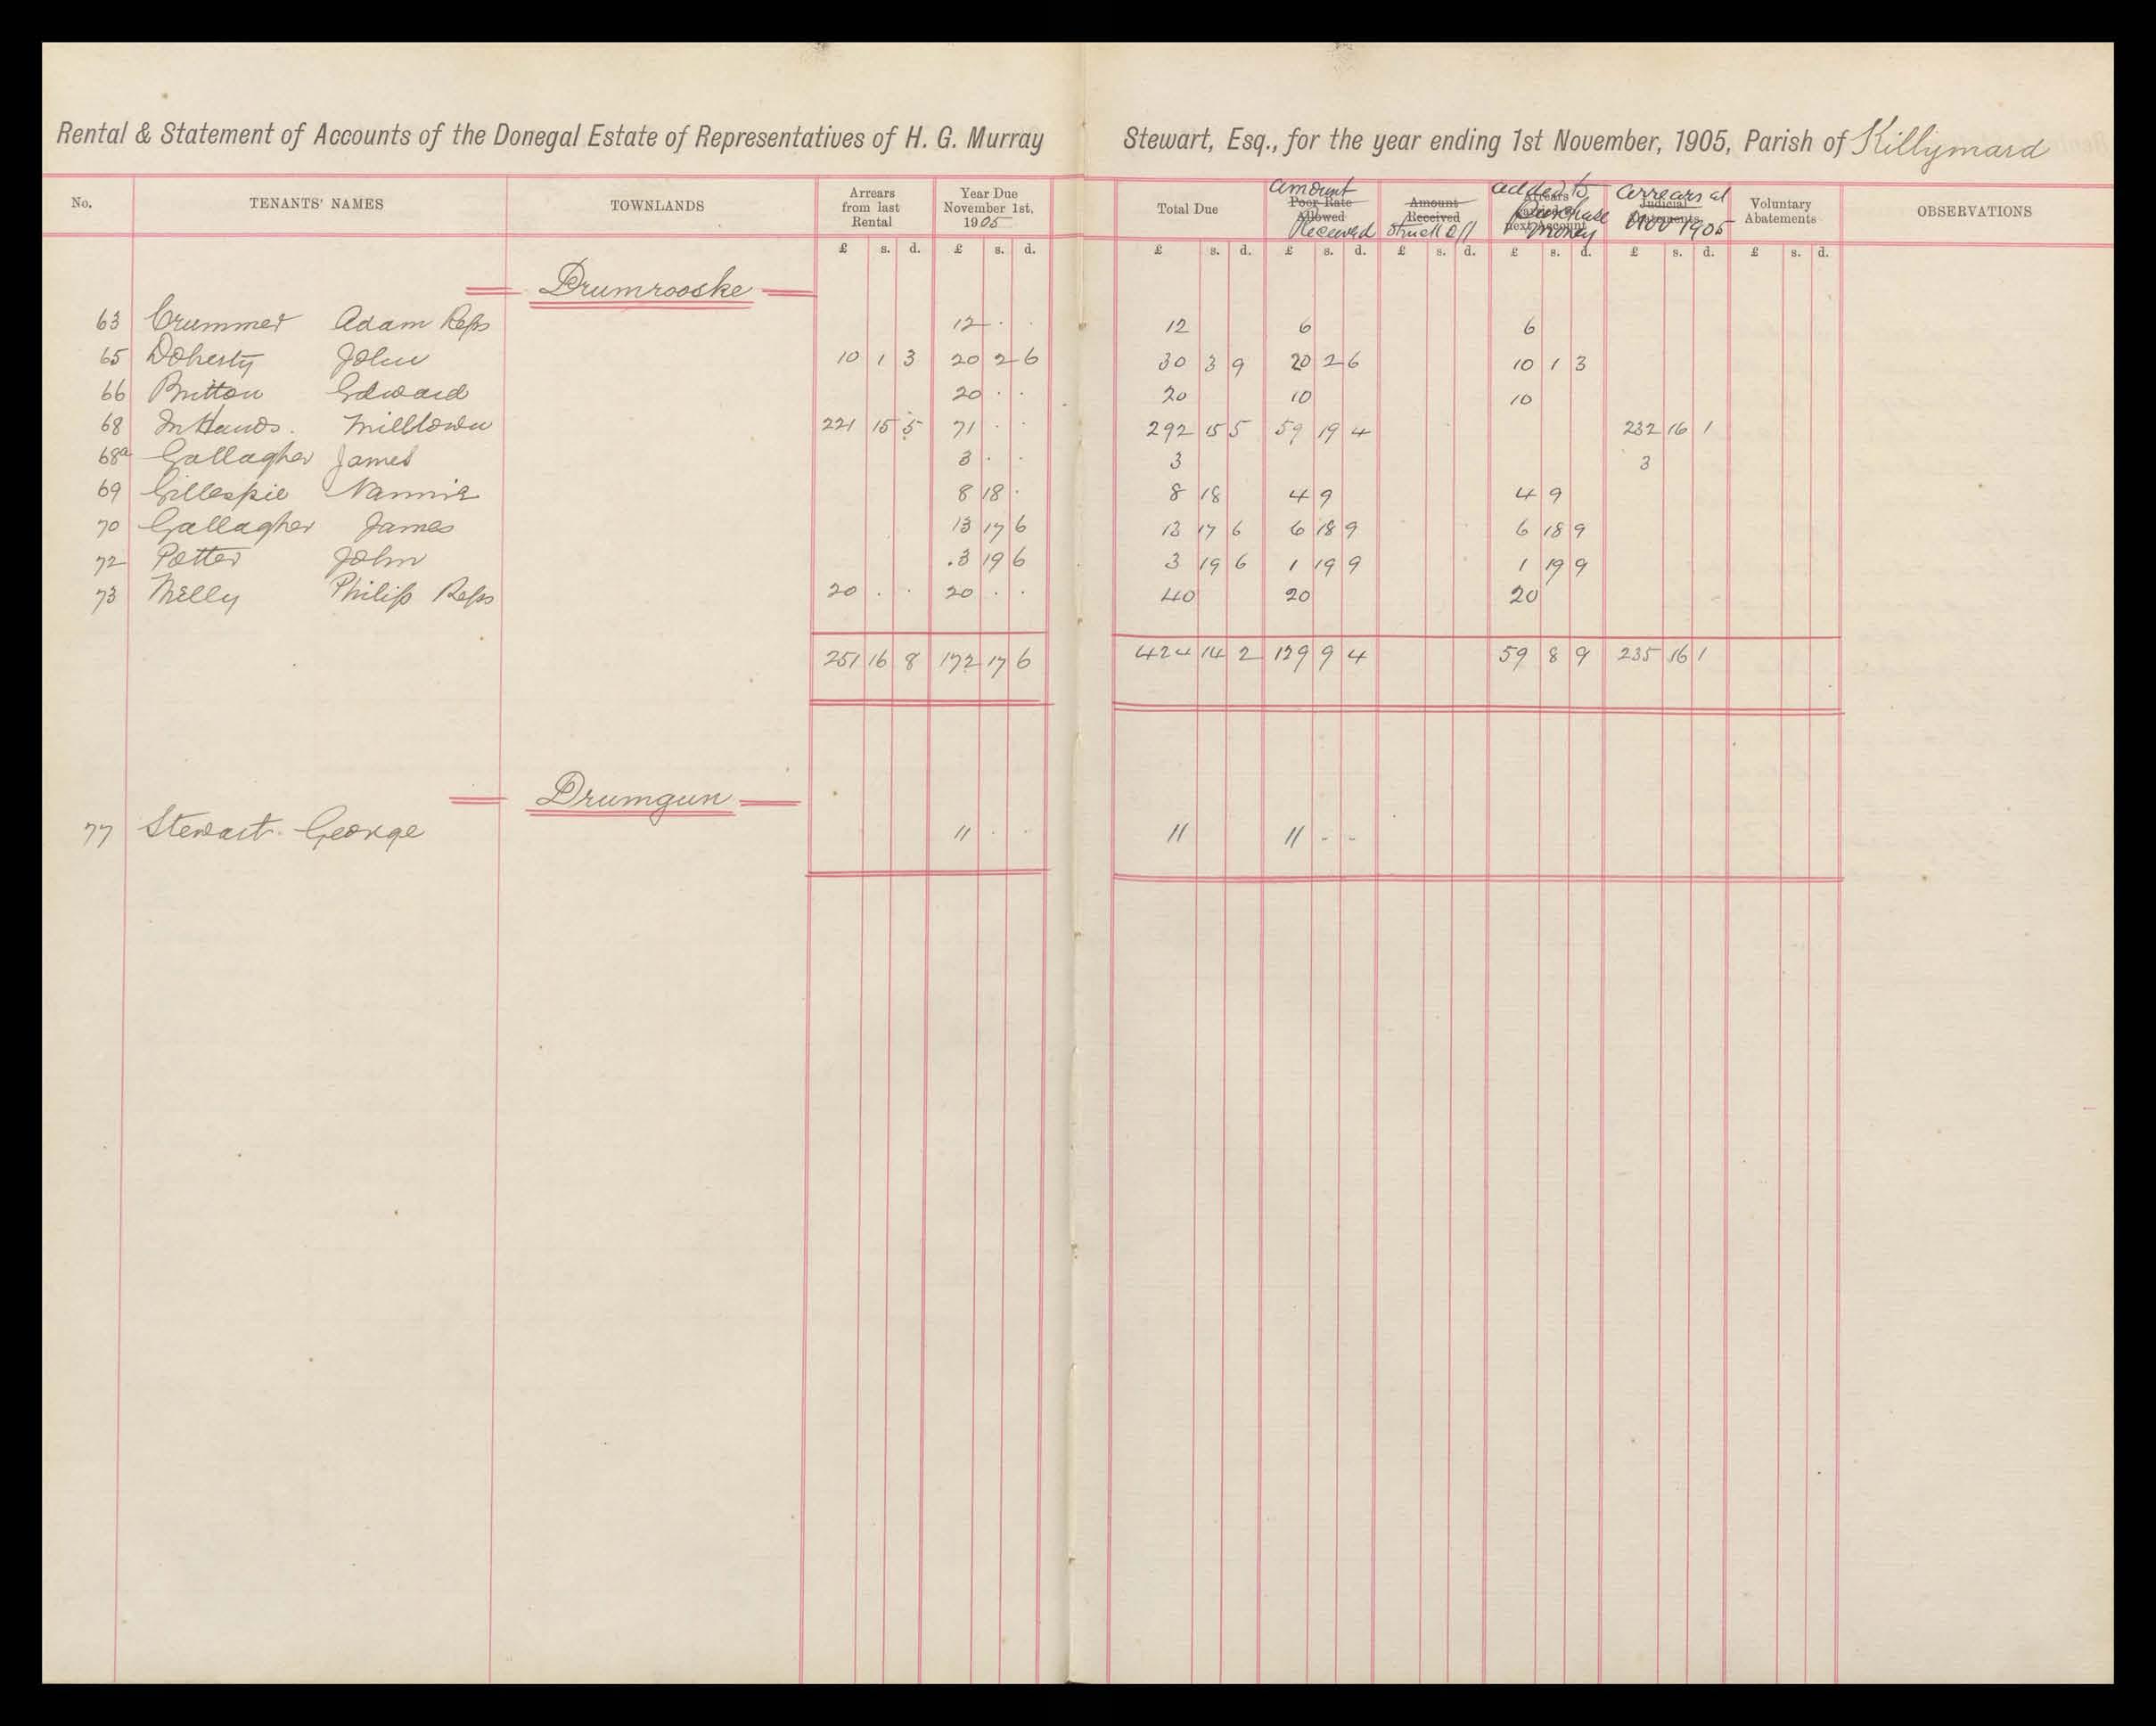 Rental & Statement of Accounts of the Donegal Estate of Representatives of H. G. Murray Stewart, Esq., for the year ending 1st November, 1905, Parish of Killymard
No. TENANTS' NAMES TOWNLANDS Arrears from last Rental Year Due November 1st, 1905 Total Due Poor Rate Allowed Amount Received Amount Received Struck Off Arrears next Account added to Purchase Money Judicial Abatements Arrears at Nov 1905 Voluntary Abatements OBSERVATIONS
£ s. d. £ s. d. £ s. d. £ s. d. £ s. d. £ s. d. £ s. d. £ s. d.
Drumrooske
63 Crummer Adam Reps 12 . . 12 6 6
65 Doherty John 10 1 3 20 2 6 30 3 9 20 2 6 10 1 3
66 Britton Edward 20 . . 20 10 10
68 In Hands. Milltown 221 15 5 71 . . 292 15 5 59 19 4 232 16 1
68a Gallagher James 3 . . 3 3
69 Gillespie Nannie 8 18 . 8 18 4 9 4 9
70 Gallagher James 13 17 6 13 17 6 6 18 9 6 18 9
72 Potter John 3 19 6 3 19 6 1 19 9 1 19 9
73 Melly Philip Reps 20 . . 20 . . 40 20 20
251 16 8 172 17 6 424 14 2 129 9 4 59 8 9 235 16 1
Drumgun
77 Stewart George 11 . . 11 11 - -